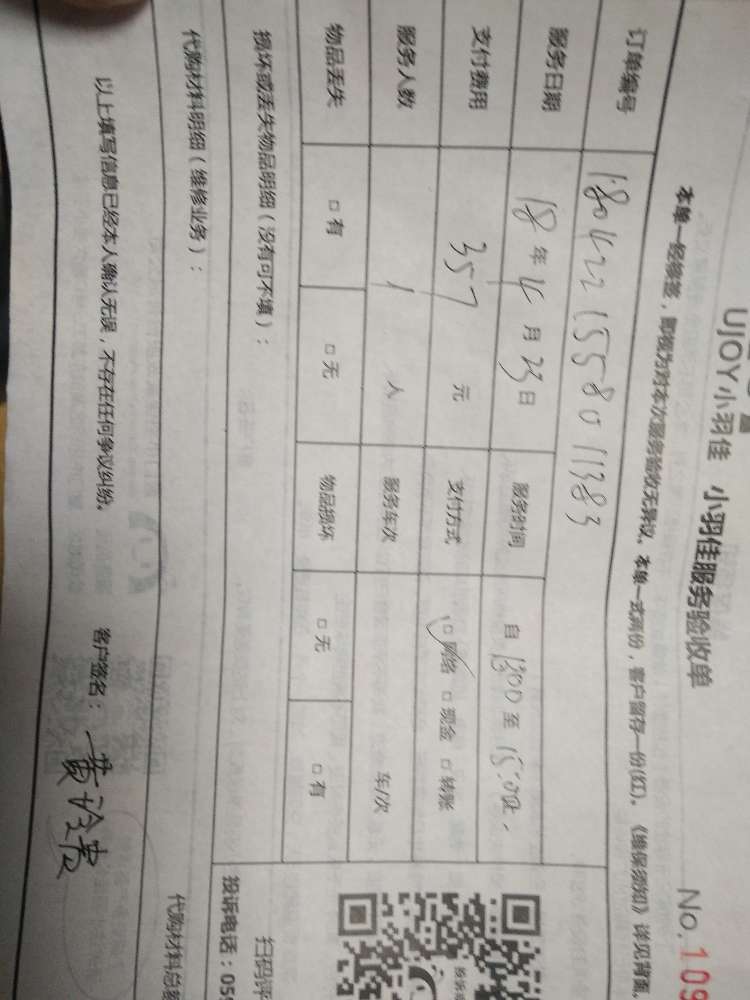 UJOY小羽佳 小羽佳服务验收单
No.109
本单一经签, 即视为对本次服务验收无异议。本单一式两份, 客户留存一份(红)。《维保须知》详见背面。
订单编号 180422155801 11383
服务日期 18年4月23日 服务时间 自1300至
支付费用 357元 支付方式 ☑网络 □现金 □转账
服务人数 1人 服务车次 车/次
物品丢失 □有 □无 物品损坏 □无 □有
损坏或丢失物品明细(没有可不填):
代购材料明细(维修业务):
代购材料总
以上填写信息已经本人确认无误, 不存在任何争议纠纷。 客户签名: 黄
扫码评
投诉电话:059